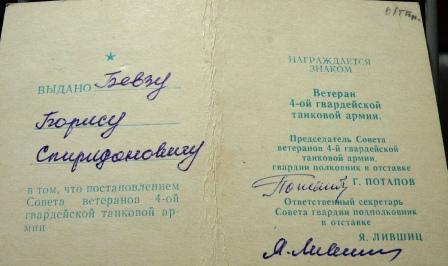 ВЫДАНО Бевзу
Борису
Спиридоновичу
в том, что постановлением
Совета ветеранов 4-ой
гвардейской танковой ар-
мии
НАГРАЖДАЕТСЯ
ЗНАКОМ
Ветеран
4-ой гвардейской
танковой армии.
Председатель Совета
ветеранов 4-й гвардейской
танковой армии,
гвардии полковник в отставке
Г. ПОТАПОВ
Ответственный секретарь
Совета гвардии подполковник
в отставке
Я. ЛИВШИЦ